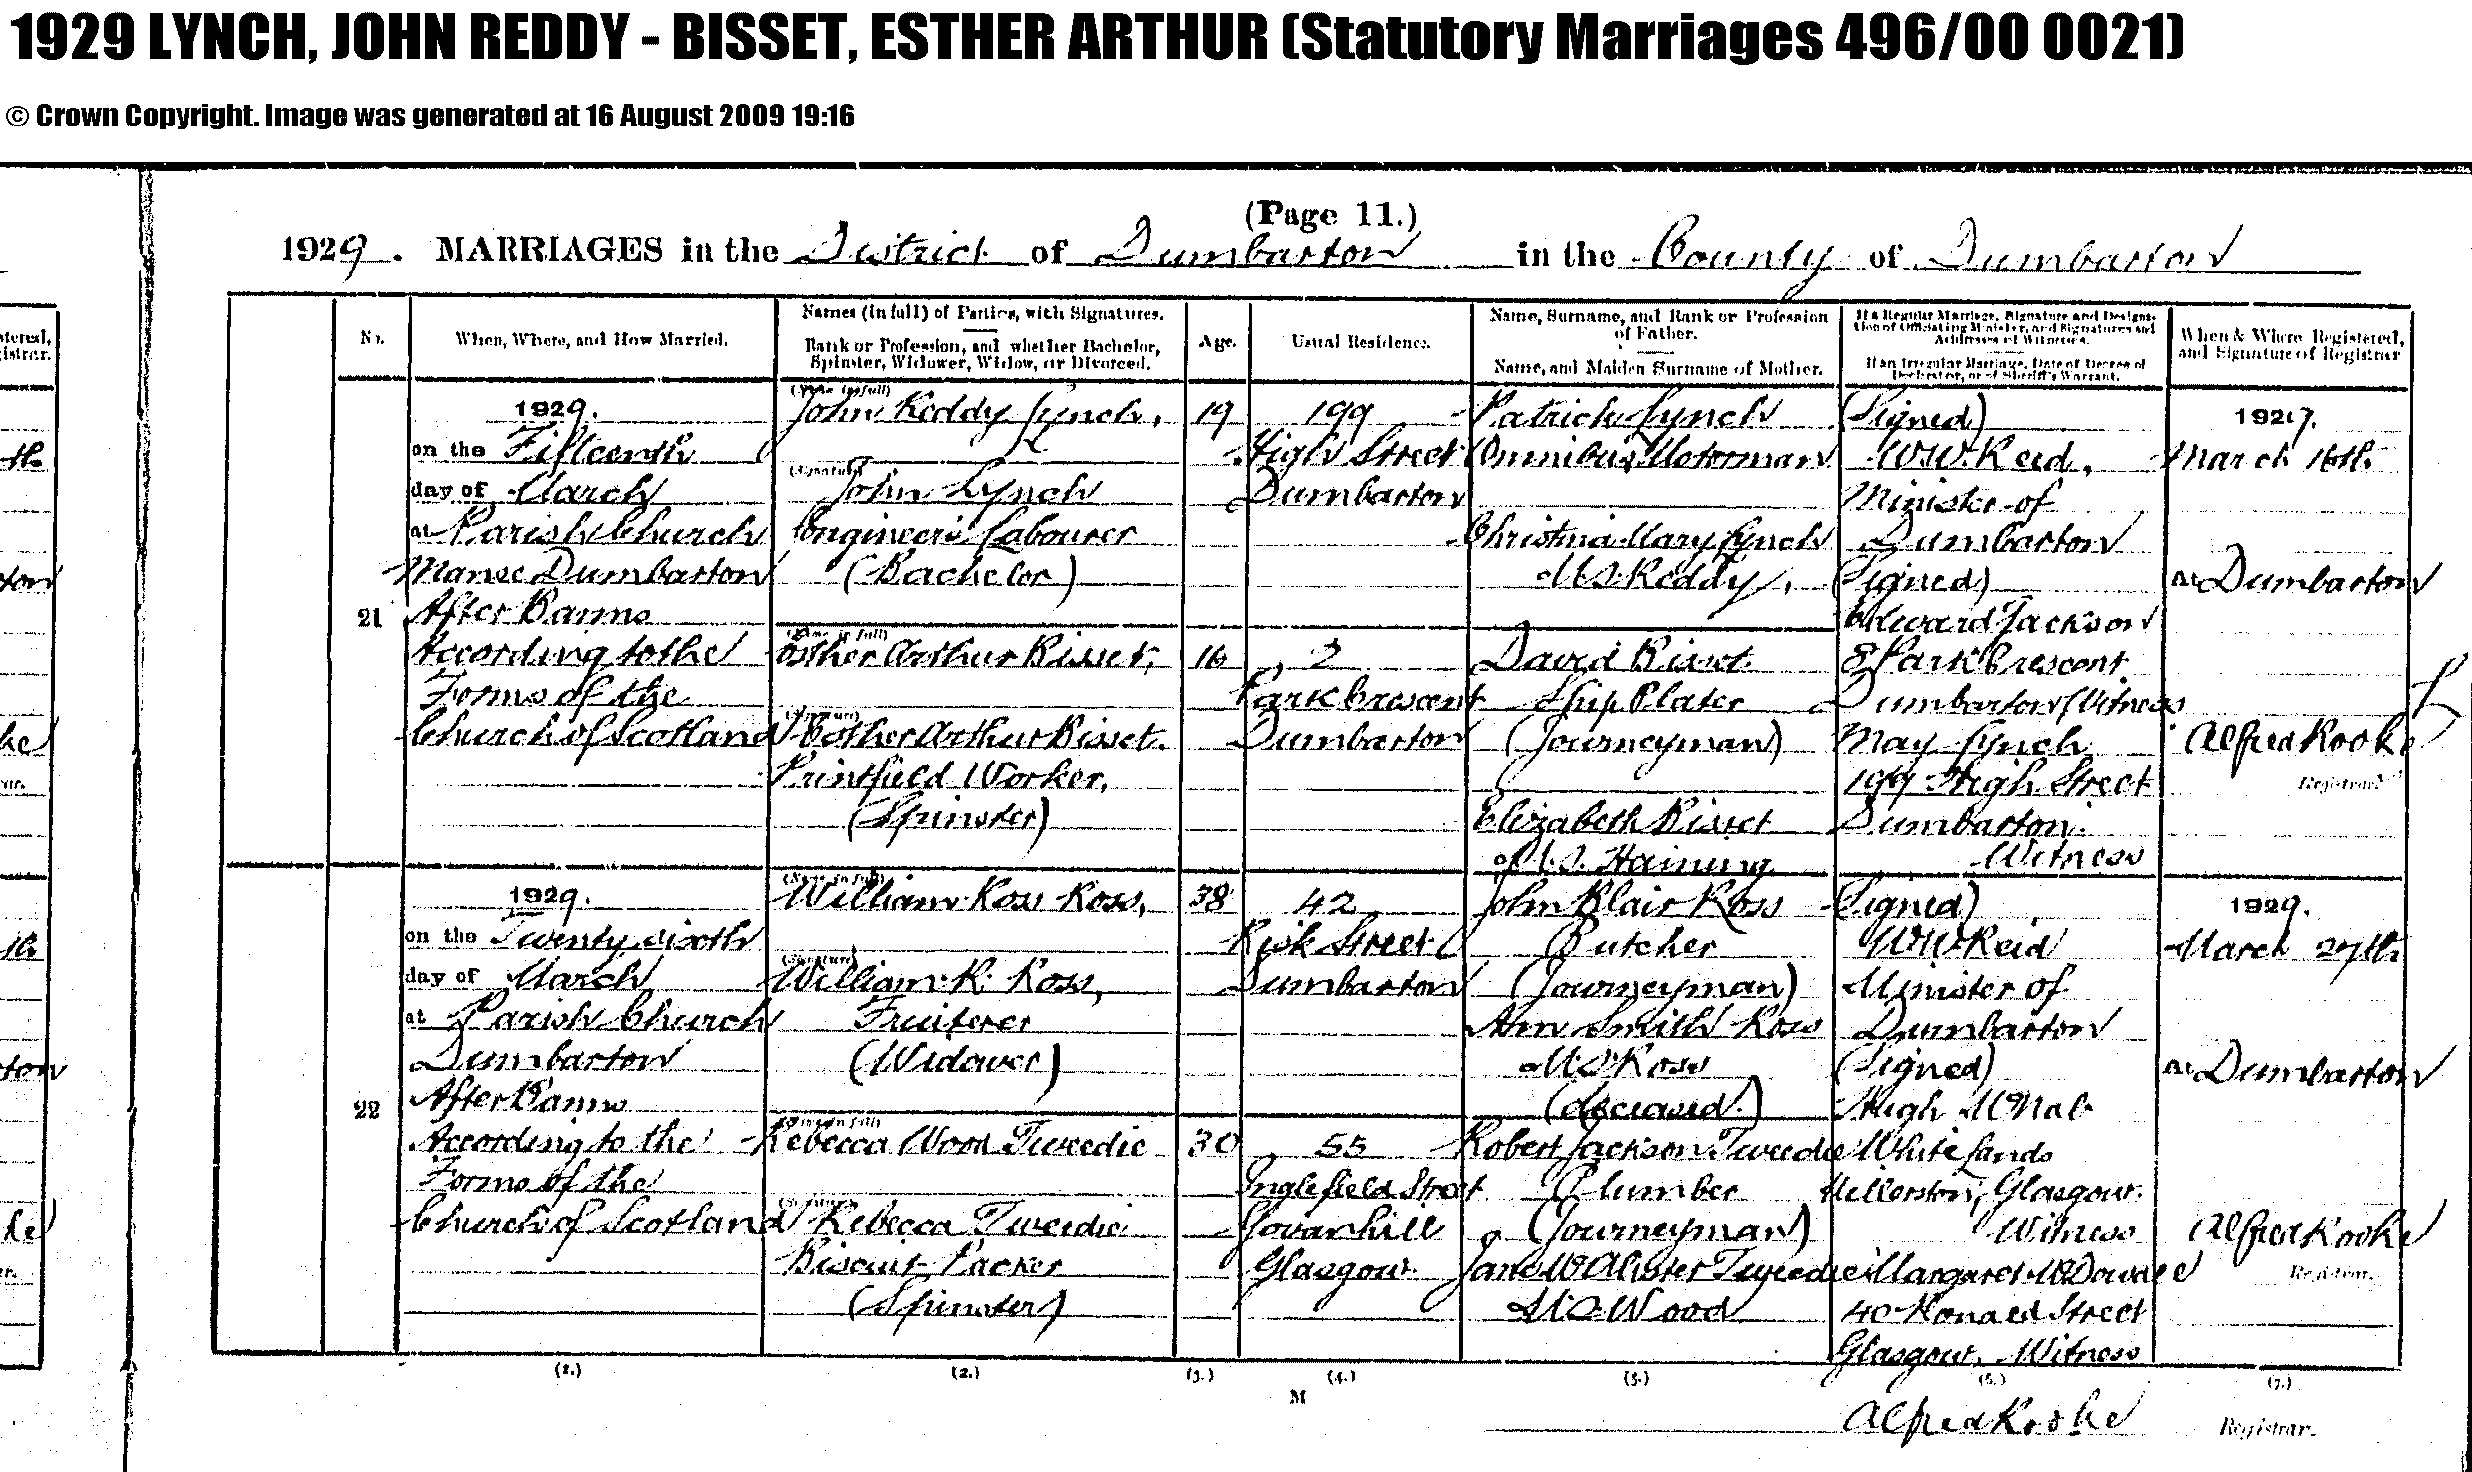 1929 LYNCH, JOHN REDDY - BISSET, ESTHER ARTHUR (Statutory Marriages 496/00 0021)
© Crown Copyright. Image was generated at 16 August 2009 19:16
(Page 11.)
1929. MARRIAGES in the District of Dumbarton in the County of Dumbarton
No.
When, Where, and How Married.
Names (in full) of Parties, with Signatures.
Rank or Profession, and whether Bachelor,
Spinster, Widower, Widow, or Divorced.
Age.
Usual Residence.
Name, Surname, and Rank or Profession
of Father.
Name, and Maiden Surname of Mother.
If a Regular Marriage, Signature and Designa-
tion of Officiating Minister, and Signatures and
Addresses of Witnesses.
If an Irregular Marriage, Date of Decree of
Declarator, or of Sheriff's Warrant.
When & Where Registered,
and Signature of Registrar
21
1929.
on the Fifteenth
day of March
at Parish Church
Manse Dumbarton
After Banns
According to the
Forms of the
Church of Scotland
(Name in full)
John Reddy Lynch,
(Signature)
John Lynch
Engineer's Labourer
(Bachelor)
19
199
High Street
Dumbarton
Patrick Lynch
Omnibus Motorman
Christina Mary Lynch
M.S. Reddy.
(Name in full)
Esther Arthur Bisset,
(Signature)
Esther Arthur Bisset.
Printfield Worker,
(Spinster)
16
2
Park Crescent
Dumbarton
David Bisset
Ship Plater
(Journeyman)
Elizabeth Bisset
M.S. Haining
(Signed)
W.W. Reid,
Minister of
Dumbarton
(Signed)
Edward Jackson
8 Park Crescent
Dumbarton Witness
May Lynch
199 High Street
Dumbarton.
Witness
1929.
March 16th
at Dumbarton
Alfred Rooke
Registrar.
22
1929.
on the Twenty sixth
day of March
at Parish Church
Dumbarton
After Banns
According to the
Forms of the
Church of Scotland
(Name in full)
William Ross Ross,
(Signature)
William R. Ross,
Fruiterer
(Widower)
38
42
Risk Street
Dumbarton
John Blair Ross
Butcher
(Journeyman)
Ann Smith Ross
M.S. Ross
(deceased.)
(Name in full)
Rebecca Wood Tweedie
(Signature)
Rebecca Tweedie
Biscuit Packer
(Spinster)
30
55
Inglefield Street
Govanhill
Glasgow
Robert Jackson Tweedie
Plumber
(Journeyman)
Jane McAlister Tweedie
M.S. Wood
(Signed)
W.W. Reid
Minister of
Dumbarton
(Signed)
Hugh McNab
White Lands
Millerston, Glasgow.
Witness
Margaret McDowall
40 Ronald Street
Glasgow, Witness
1929.
March 27th
at Dumbarton
Alfred Rooke
Registrar.
(1.) (2.) (3.) (4.) (5.) (6.) (7.)
M
Alfred Rooke Registrar.